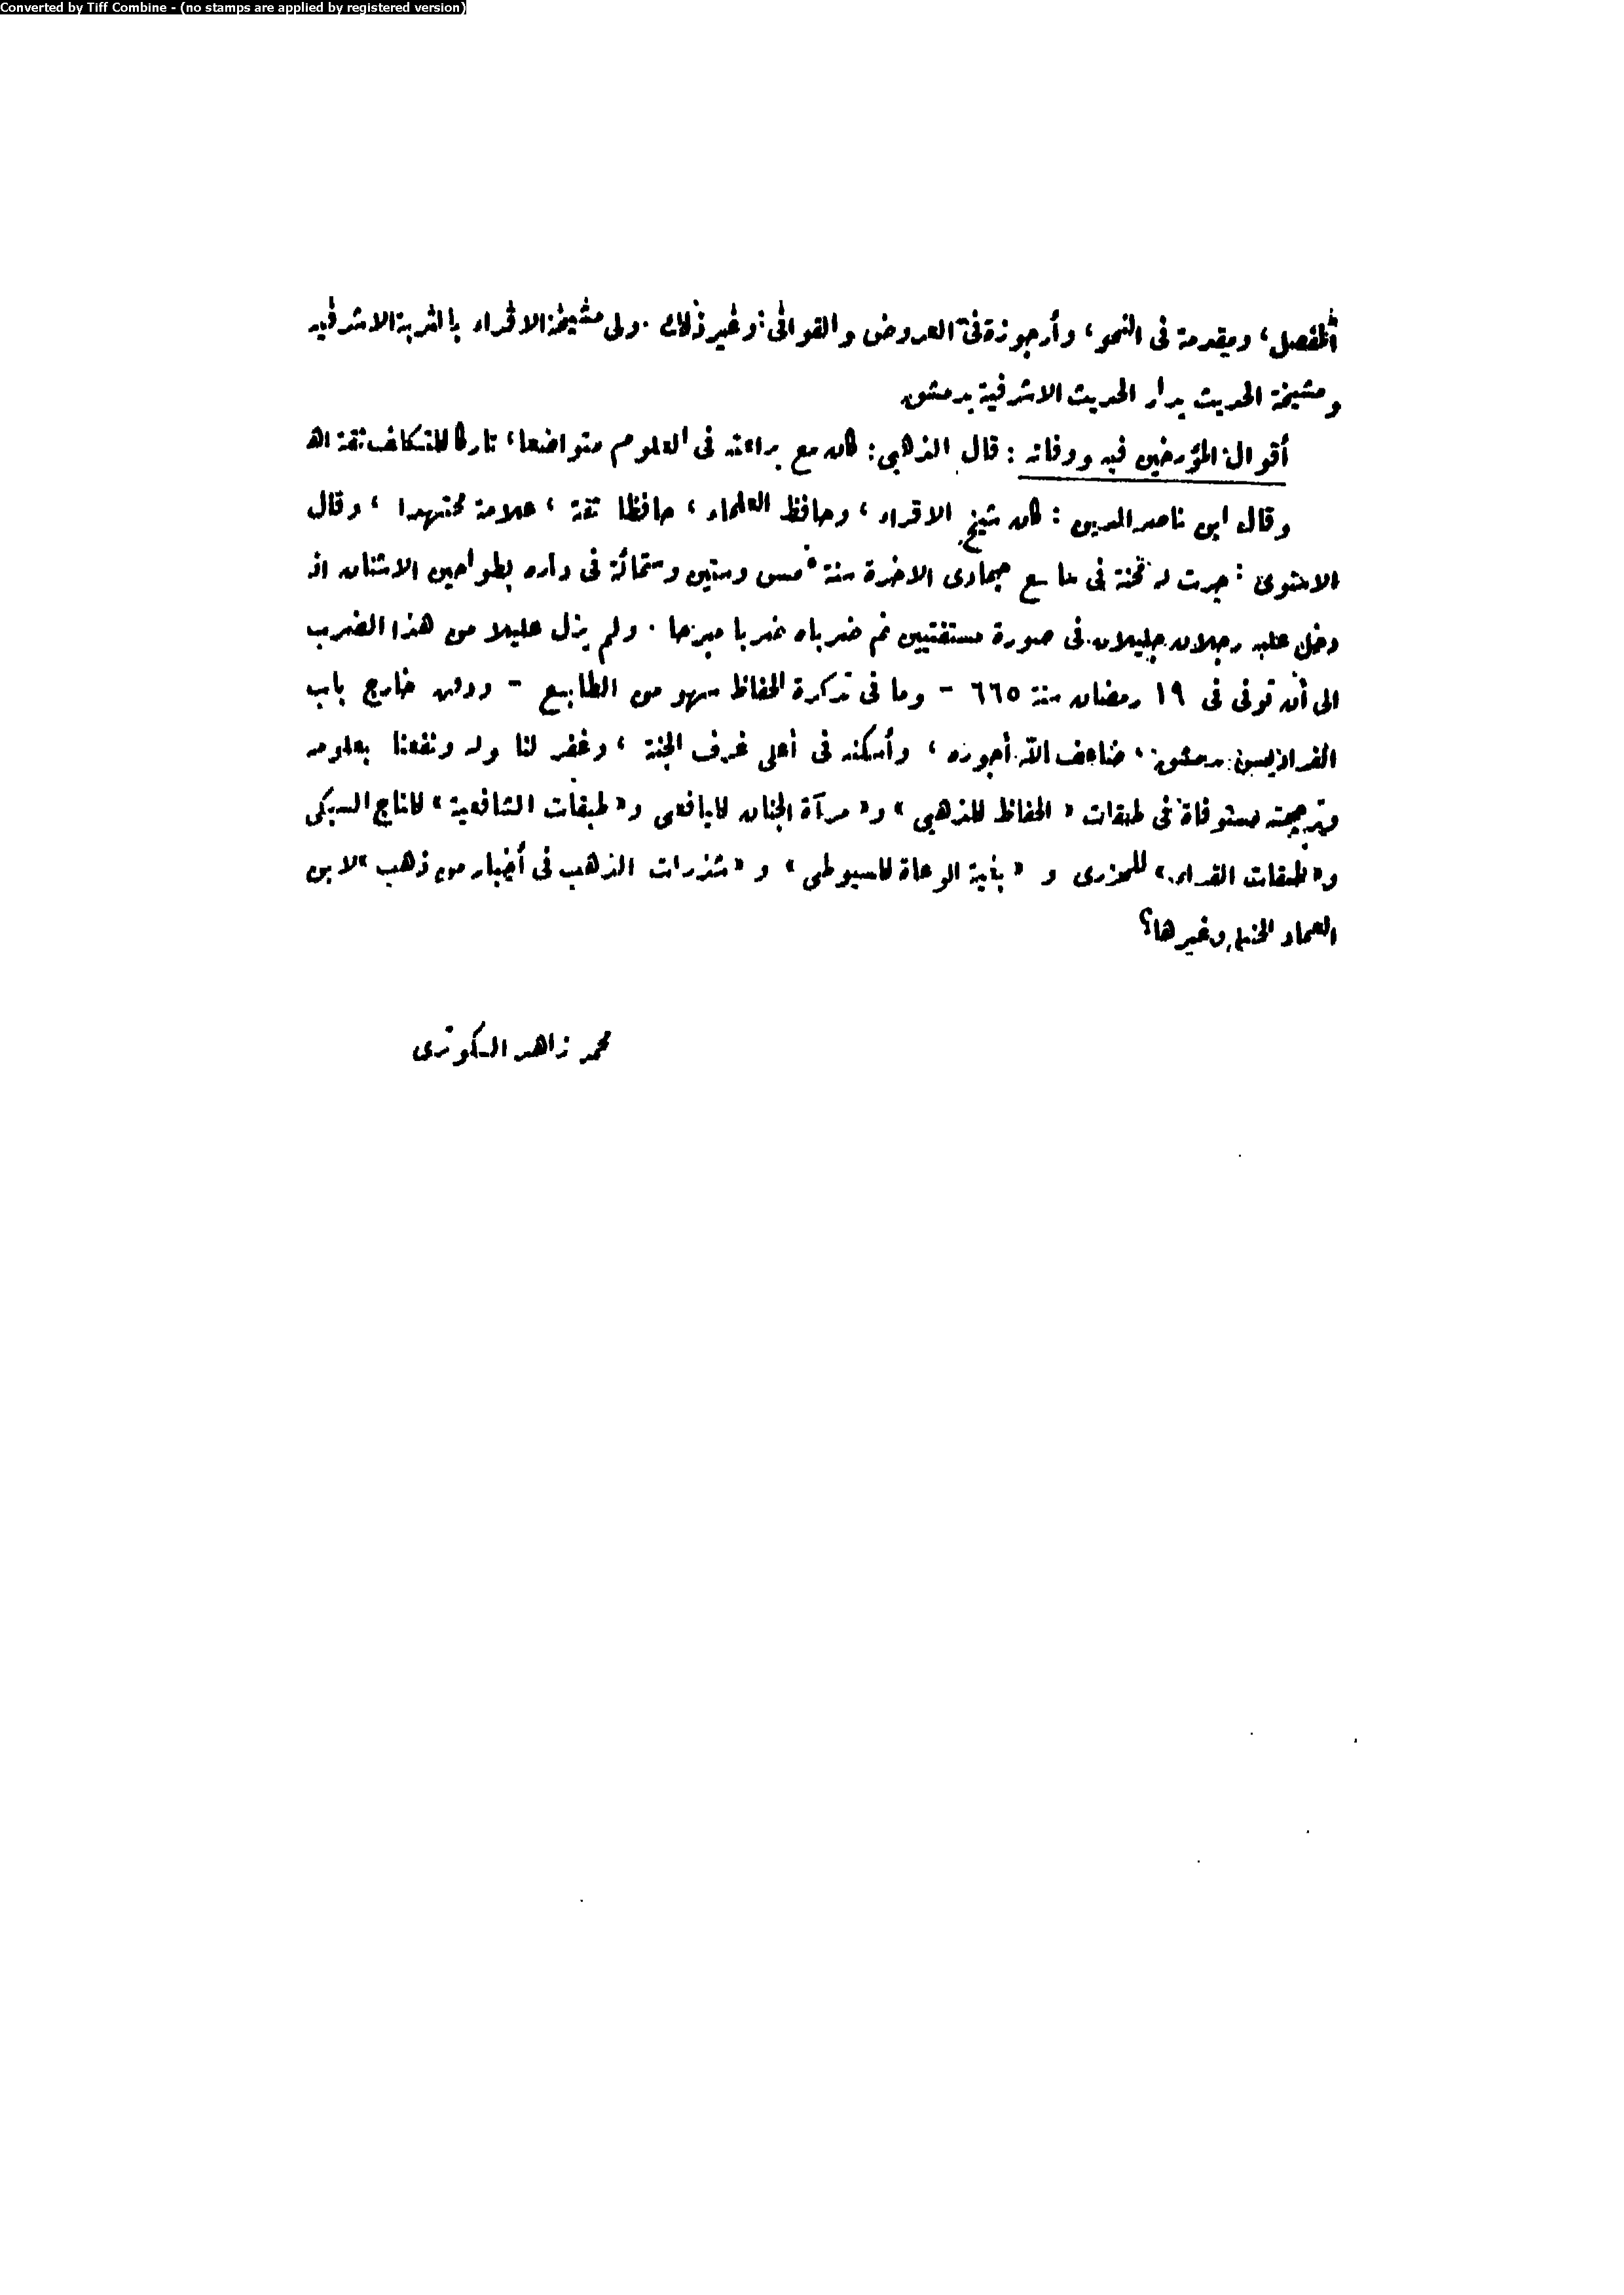 Converted by Tiff Combine - (no stamps are applied by registered version)
المفصل، ومقدمة فى النحو، وأرجوزة فى العروض والقوافى وغير ذلك . ولى مشيخة الاقراء بالتربة الاشرفية
ومشيخة الحديث بدار الحديث الاشرفية بدمشق
أقوال المؤرخين فيه ووفاته : قال الذهبى : كان مع براعته فى العلوم متواضعا، تاركا للتكلف ثقة اهـ
وقال ابن ناصر الدين : كان شيخ الاقراء ، وحافظ العلماء ، حافظا ثقة ، علامة مجتهدا ، وقال
الاسنوى : جرت له محنة فى سابع جمادى الاخرة سنة خمس وستين وستمائة فى داره بطواحين الاشنان اذ
دخل عليه رجلان جليلان فى صورة مستفتيين ثم ضرباه ضربا مبرحا . ولم يزل عليلا من هذا الضرب
الى أن توفى فى ١٩ رمضان سنة ٦٦٥ - وما فى تذكرة الحفاظ سهو من الطابع - ودفن خارج باب
الفراديس بدمشق ، ضاعف الله أجوره ، وأسكنه فى أعلى غرف الجنة ، وغفر لنا وله ونفعنا بعلومه
وترجمته مستوفاة فى طبقات « الحفاظ للذهبى » و« مرآة الجنان لليافعى و« طبقات الشافعية » للتاج السبكى
و« طبقات القراء » للجزرى و « بغية الوعاة للسيوطى » و « شذرات الذهب فى أخبار من ذهب » لابن
العماد الحنبلى وغيرها؟
محمد زاهد الكوثرى